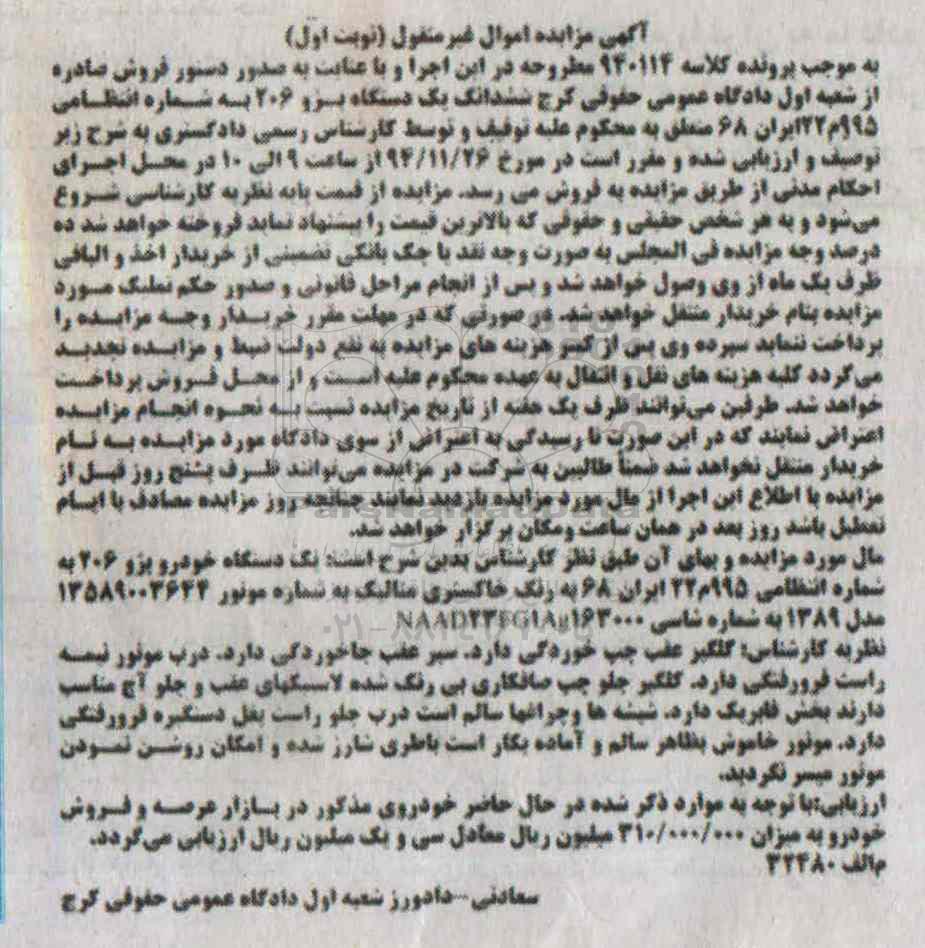 آگهی مزایده اموال غیر منقول (نوبت اول)
به موجب پرونده کلاسه ۹۴۰۱۱۴ مطروحه در این اجرا و با عنایت به صدور دستور فروش صادره
از شعبه اول دادگاه عمومی حقوقی کرج ششدانگ یک دستگاه پژو ۲۰۶ به شماره انتظامی
۹۹۵م۲۲ایران ۶۸ متعلق به محکوم علیه توقیف و توسط کارشناس رسمی دادگستری به شرح زیر
توصیف و ارزیابی شده و مقرر است در مورخ ۹۴/۱۱/۲۶ از ساعت ۹ الی ۱۰ در محل اجرای
احکام مدنی از طریق مزایده به فروش می رسد. مزایده از قیمت پایه نظریه کارشناسی شروع
می‌شود و به هر شخص حقیقی و حقوقی که بالاترین قیمت را پیشنهاد نماید فروخته خواهد شد ده
درصد وجه مزایده فی المجلس به صورت وجه نقد یا چک بانکی تضمینی از خریدار اخذ و الباقی
ظرف یک ماه از وی وصول خواهد شد و پس از انجام مراحل قانونی و صدور حکم تملیک مورد
مزایده بنام خریدار منتقل خواهد شد. در صورتی که در مهلت مقرر خریدار وجه مزایده را
پرداخت ننماید سپرده وی پس از کسر هزینه های مزایده به نفع دولت ضبط و مزایده تجدید
می‌گردد کلیه هزینه های نقل و انتقال به عهده محکوم علیه است و از محل فروش پرداخت
خواهد شد. طرفین می‌توانند ظرف یک هفته از تاریخ مزایده نسبت به نحوه انجام مزایده
اعتراض نمایند که در این صورت تا رسیدگی به اعتراض از سوی دادگاه مورد مزایده به نام
خریدار منتقل نخواهد شد ضمناً طالبین به شرکت در مزایده می‌توانند ظرف پنج روز قبل از
مزایده با اطلاع این اجرا از مال مورد مزایده بازدید نمایند چنانچه روز مزایده مصادف با ایام
تعطیل باشد روز بعد در همان ساعت ومکان برگزار خواهد شد.
مال مورد مزایده و بهای آن طبق نظر کارشناس بدین شرح است: یک دستگاه خودرو پژو ۲۰۶ به
شماره انتظامی ۹۹۵م۲۲ ایران ۶۸ به رنگ خاکستری متالیک به شماره موتور ۱۳۵۸۹۰۰۳۶۴۴
مدل ۱۳۸۹ به شماره شاسی
نظریه کارشناس: گلگیر عقب چپ خوردگی دارد. سپر عقب جاخوردگی دارد. درب موتور نیمه
راست فرورفتگی دارد. گلگیر جلو چپ صافکاری بی رنگ شده لاستیکهای عقب و جلو آج مناسب
دارند پخش فابریک دارد. شیشه ها وچراغها سالم است درب جلو راست بغل دستگیره فرورفتگی
دارد. موتور خاموش بظاهر سالم و آماده بکار است باطری شارژ شده و امکان روشن نمودن
موتور میسر نگردید.
ارزیابی:با توجه به موارد ذکر شده در حال حاضر خودروی مذکور در بازار عرصه و فروش
خودرو به میزان ۳۱۰/۰۰۰/۰۰۰ میلیون ریال معادل سی و یک میلیون ریال ارزیابی می‌گردد.
م‌الف ۳۲۴۸۰
سعادتی -دادورز شعبه اول دادگاه عمومی حقوقی کرج